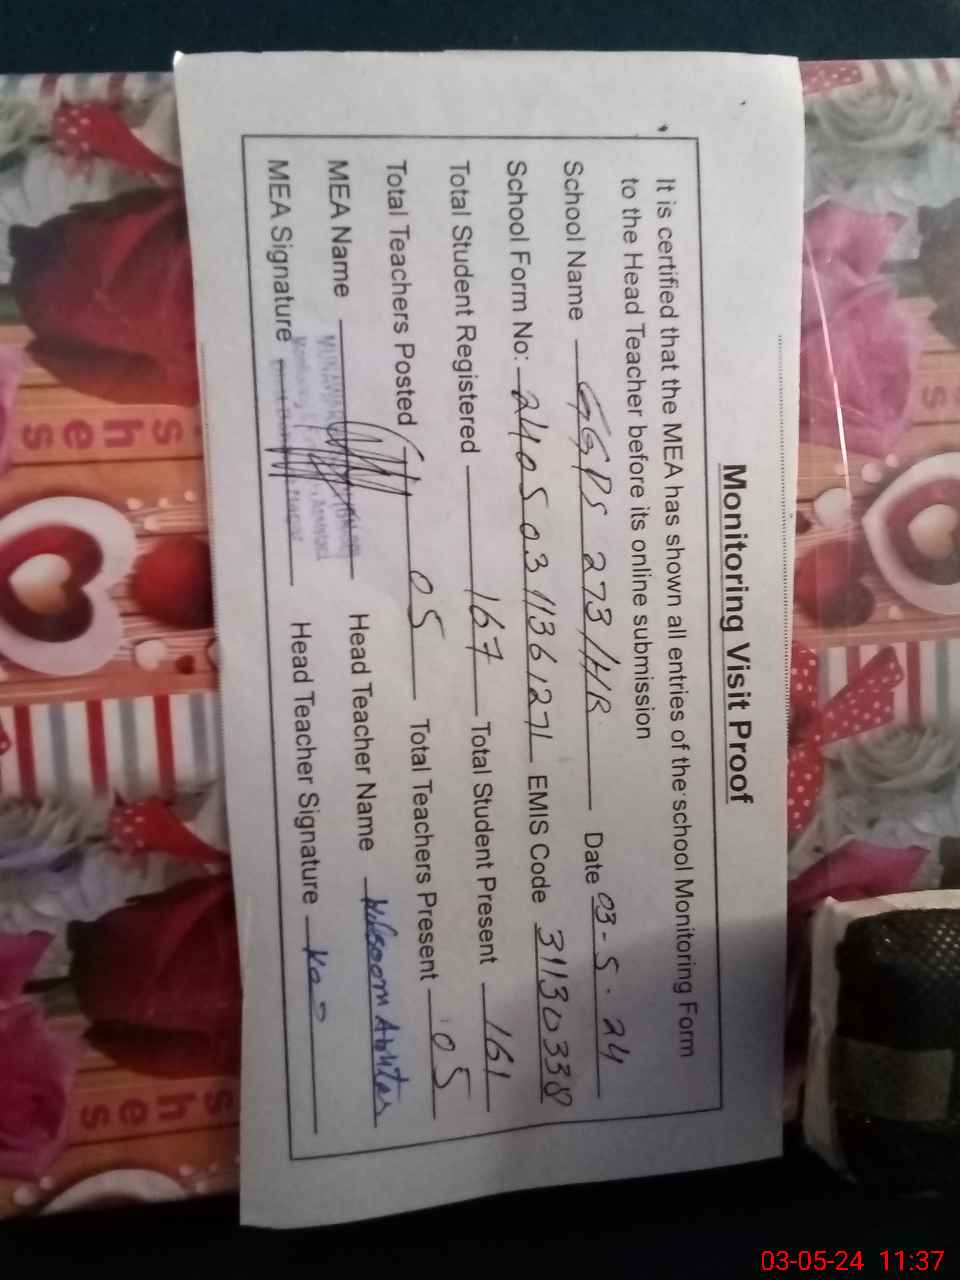 Monitoring Visit Proof
It is certified that the MEA has shown all entries of the school Monitoring Form
to the Head Teacher before its online submission
School Name GGPS 273/HR Date 03-5-24
School Form No: 24050311361271 EMIS Code 31130338
Total Student Registered 167 Total Student Present 161
Total Teachers Posted 05 Total Teachers Present 05
MEA Name Head Teacher Name Kulsoom Akhtar
MEA Signature Head Teacher Signature
shes
shes
03-05-24 11:37